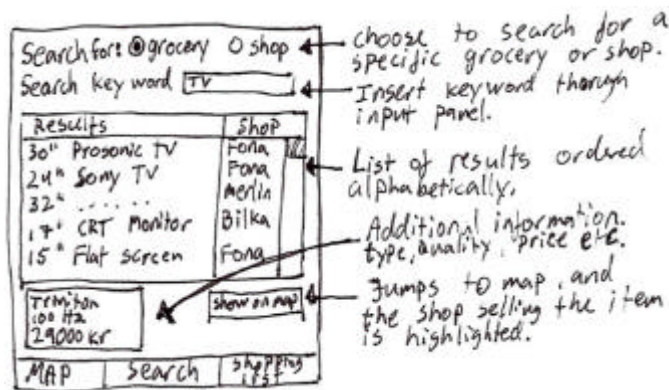 Search for: grocery shop
Search key word TV
Results Shop
30" Prosonic TV Fona
24" Sony TV Fona
32" ....... Merlin
17" CRT Monitor Bilka
15" Flat screen Fona
100 Hz
29000 kr
show on map
MAP Search Shopping
choose to search for a
specific grocery or shop.
Insert keyword thorugh
input panel.
List of results ordered
alphabetically.
Additional information.
type, quality, price etc.
Jumps to map, and
the shop selling the item
is highlighted.